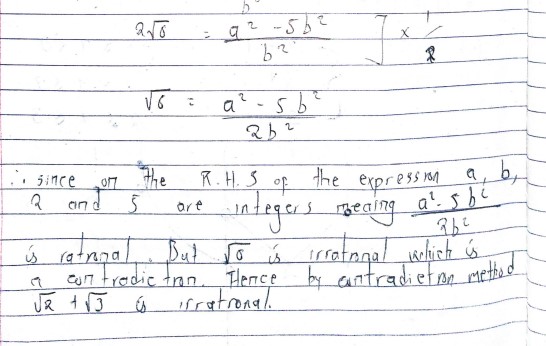 b²
2√6 = a² - 5b² / b² ] × 1/2
√6 = a² - 5b² / 2b²
∴ since on the R.H.S of the expression a, b,
2 and 5 are integers meaning a² - 5b² / 2b²
is rational. But √6 is irrational which is
a contradiction. Hence by contradiction method
√2 + √3 is irrational.